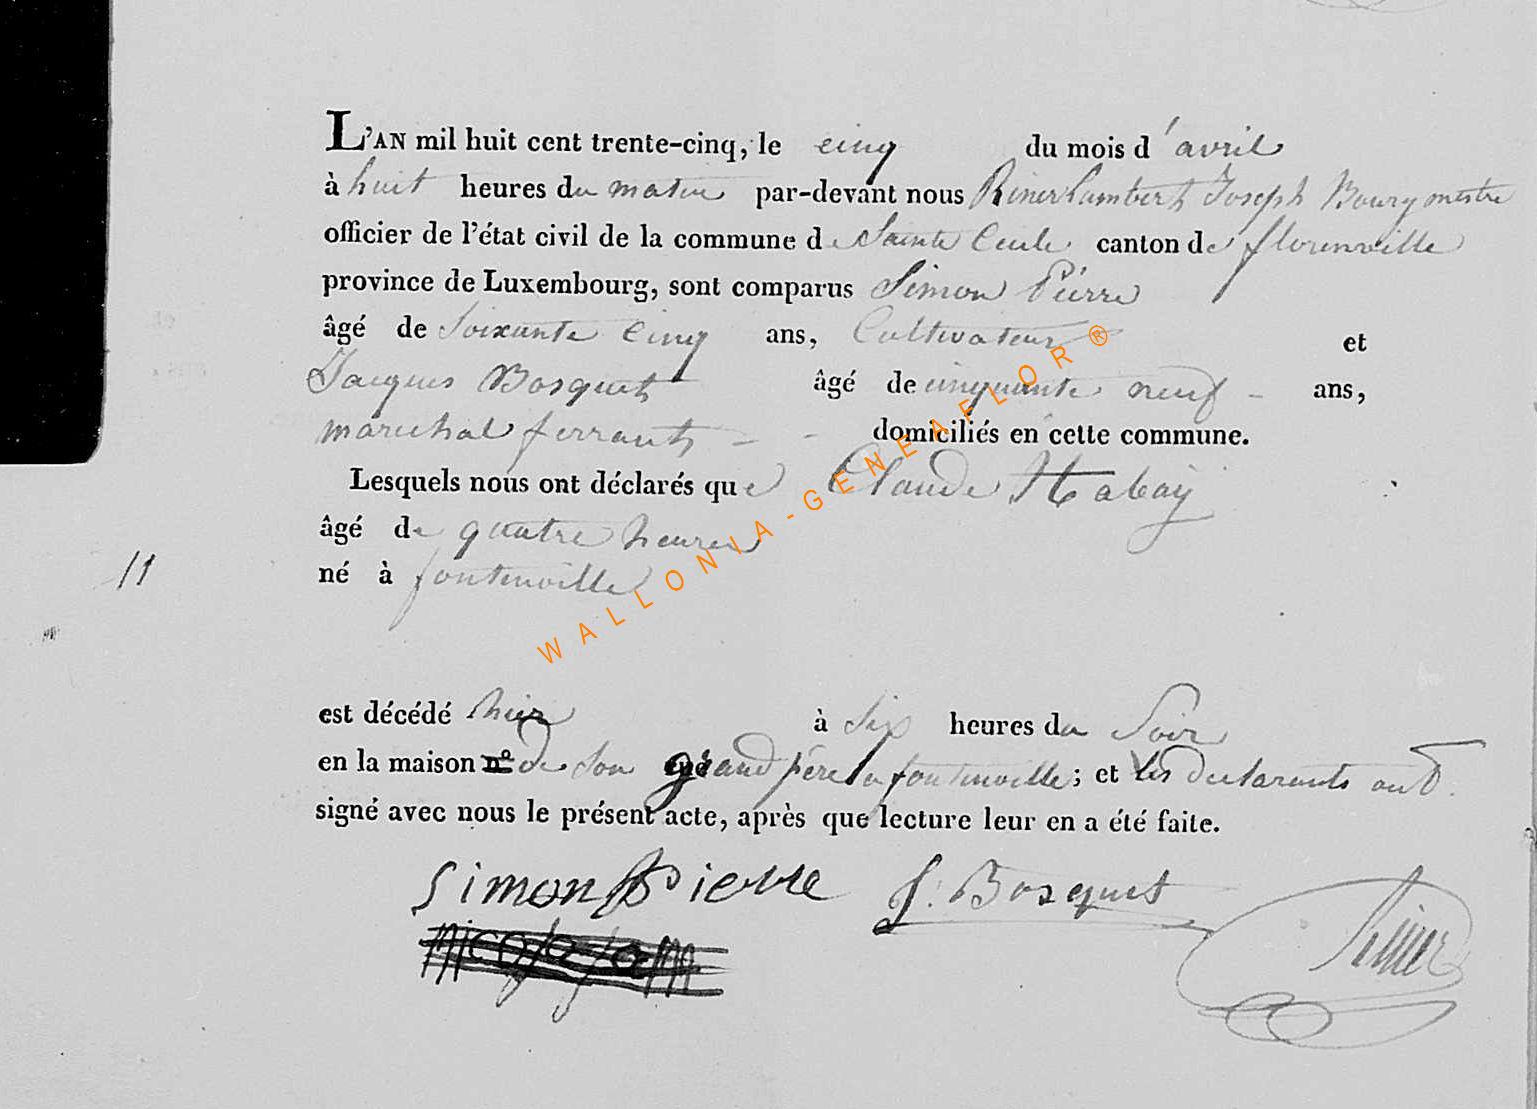 L'AN mil huit cent trente-cinq, le cinq du mois d'avril
à huit heures du matin par-devant nous Riner Lambert Joseph Bourgmestre
officier de l'état civil de la commune de Sainte Cecile canton de florenville
province de Luxembourg, sont comparus Simon Piérre
âgé de Soixante Cinq ans, Cultivateur et
Jacques Bosquet âgé de cinquante neuf - ans,
marechal ferrant - - domiciliés en cette commune.
Lesquels nous ont déclarés que Claude Habaÿ
âgé de quatre heures
11
né à fontenoille
est décédé hier à Six heures du Soir
en la maison n° de son grand père a fontenoille; et les declarants ont
signé avec nous le présent acte, après que lecture leur en a été faite.
Simon Pierre J. Bosquet
Riner
WALLONIA-GENEAFLOR®